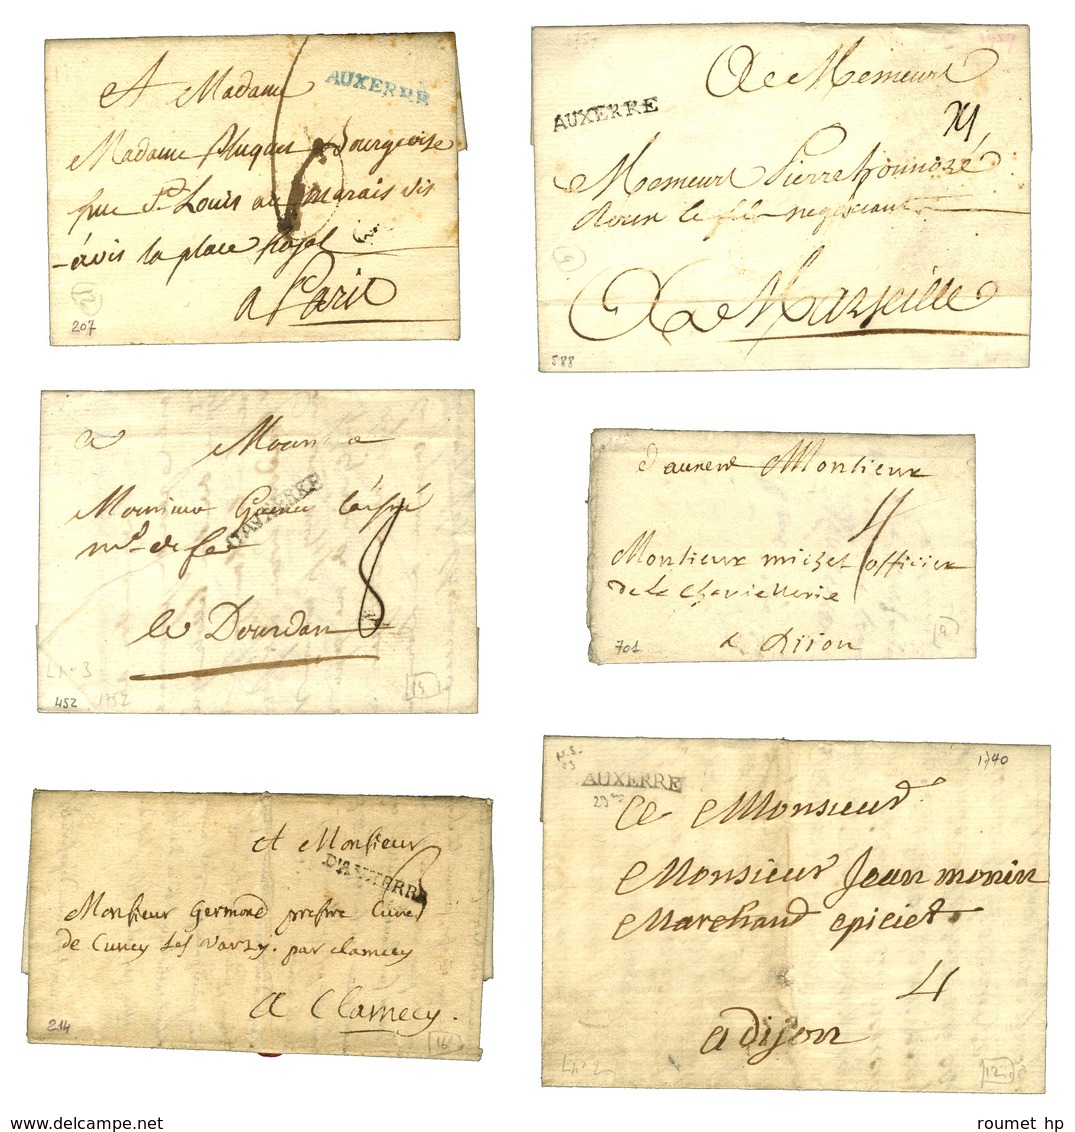 A Madame
AUXERRE
Madame Bourgeoise
rue St Louis au marais vis
-àvis la place royal
a Paris
21
207
AUXERRE
24
A Messieurs
Messieurs Pierre honnoré
Roux le fils negociant
A Marseille
9
588
a Monsieur
D'AUXERRE
Monsieur
md de
8
le Dourdan
Ln° 3
452
1752
15
d'auxerre Monsieur
4
Monsieur michel officier
de la Chancellerie
a Dijon
701
9
A Monsieur
D'AUXERRE
6
Monsieur Germond prestre Curé
de Cuncy les Varzy. par clamecy
A Clamecy.
214
16
1740
AUXERRE
29
A Monsieur
Monsieur Jean monin
Marchand epicier
4
a dijon
Ln° 2
12
roumet hp
www.delcampe.net